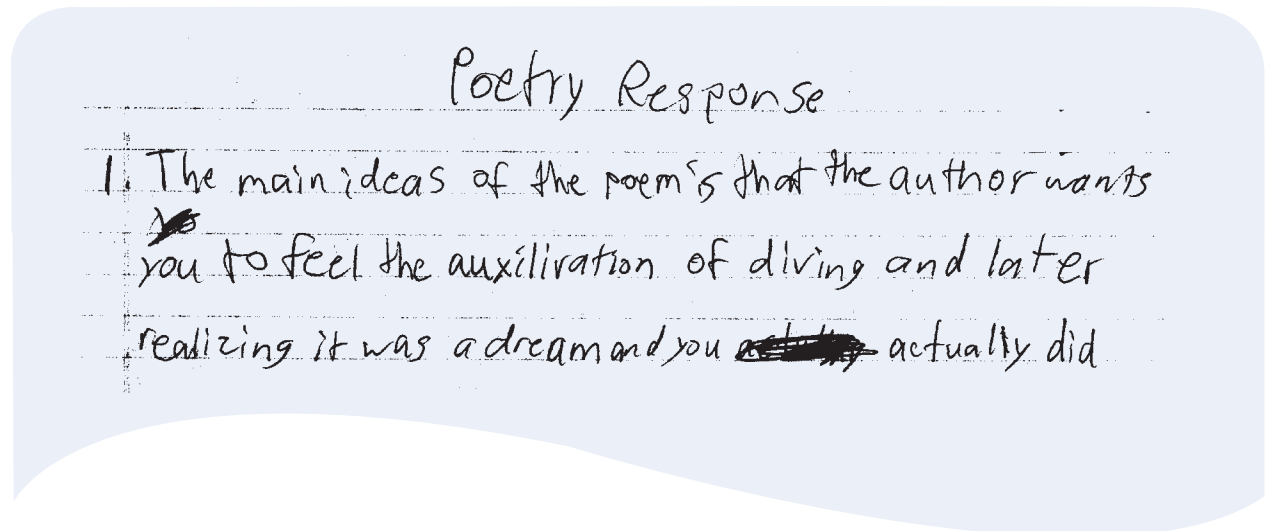 Poetry Response
1. The main ideas of the poem's that the author wants
you to feel the auxiliration of diving and later
realizing it was a dream and you actually did